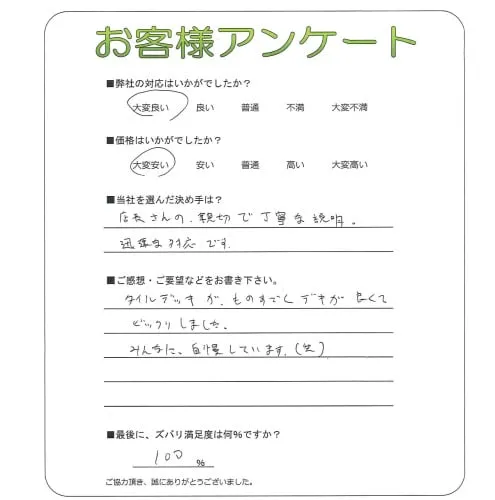 お客様アンケート
■弊社の対応はいかがでしたか?
大変良い 良い 普通 不満 大変不満
■価格はいかがでしたか?
大変安い 安い 普通 高い 大変高い
■当社を選んだ決め手は?
店長さんの、親切で丁寧な説明。
迅速な対応です。
■ご感想・ご要望などをお書き下さい。
タイルデッキが、ものすごくデキが良くて
ビックリしました。
みんなに、自慢しています。(笑)
■最後に、ズバリ満足度は何%ですか?
100 %
ご協力頂き、誠にありがとうございました。